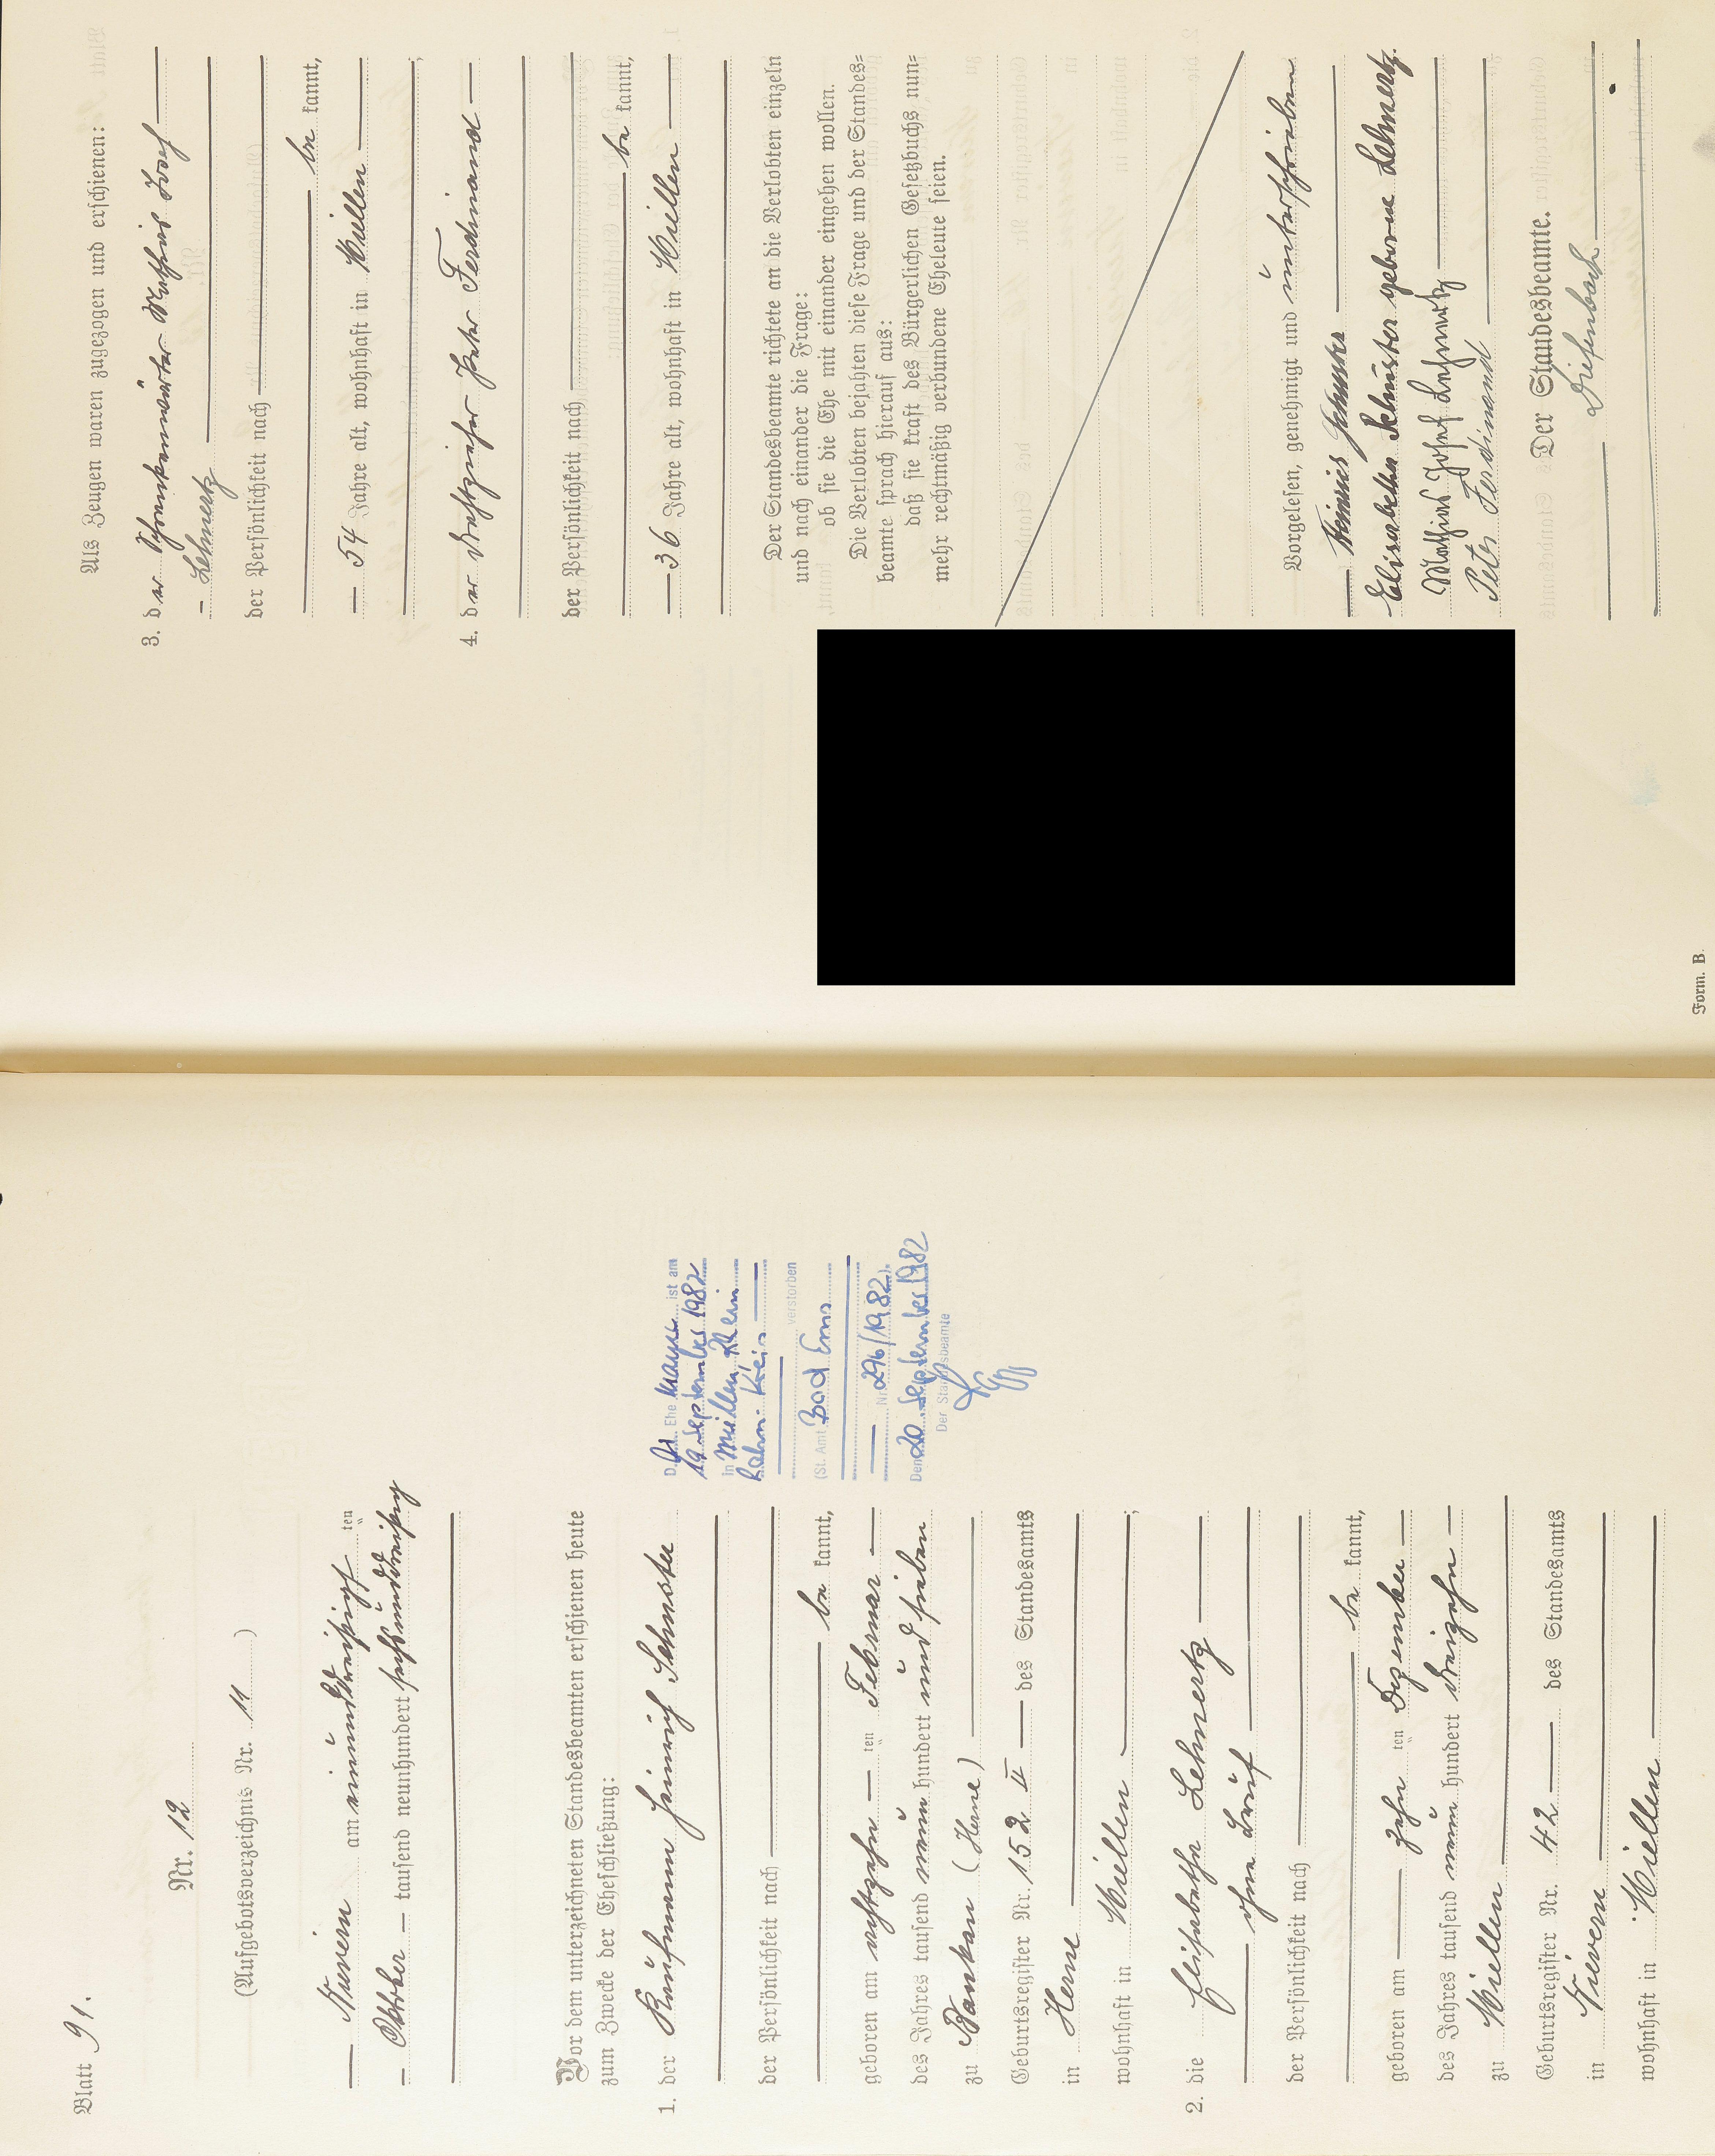 Blatt 91.
Nr. 12
(Aufgebotsverzeichnis Nr. 11)
Nievern am einunddreißigsten
Oktober tausend neunhundert sechsunddreißig
Vor dem unterzeichneten Standesbeamten erschienen heute
zum Zwecke der Eheschließung:
1. der Kaufmann Heinrich Schuster
der Persönlichkeit nach
be kannt,
geboren am achtzehn ten Februar
des Jahres tausend neun hundert und sieben
zu Baukau (Herne)
Geburtsregister Nr. 152 II des Standesamts
in Herne
wohnhaft in Miellen ;
2. die Elisabetha Lehmertz
ohne Beruf
der Persönlichkeit nach
be kannt,
geboren am zehn ten Dezember
des Jahres tausend neun hundert dreizehn
zu Miellen
Geburtsregister Nr. 42 des Standesamts
in Nievern
wohnhaft in Miellen
D. Ehe ist am
19. September 1982
in Miellen, Rhein
Lahn-Kreis
verstorben
(St. Amt Bad Ems
Nr. 296/1982).
Den 20. September 1982
Der Standesbeamte
Als Zeugen waren zugezogen und erschienen:
3. der Schrankenwärter Mathias Josef
Lehmertz
der Persönlichkeit nach
be kannt,
54 Jahre alt, wohnhaft in Miellen ;
4. der Drahtzieher Peter Ferdinand
der Persönlichkeit nach
be kannt,
36 Jahre alt, wohnhaft in Miellen
Der Standesbeamte richtete an die Verlobten einzeln
und nach einander die Frage:
ob sie die Ehe mit einander eingehen wollen.
Die Verlobten bejahten diese Frage und der Standes=
beamte sprach hierauf aus:
daß sie kraft des Bürgerlichen Gesetzbuchs nun=
mehr rechtmäßig verbundene Eheleute seien.
Vorgelesen, genehmigt und unterschrieben
Heinrich Schuster
Elisabetha Schuster geborne Lehmertz.
Mathias Josef Lehmertz
Peter Ferdinand
Der Standesbeamte.
Diefenbach
Form. B.